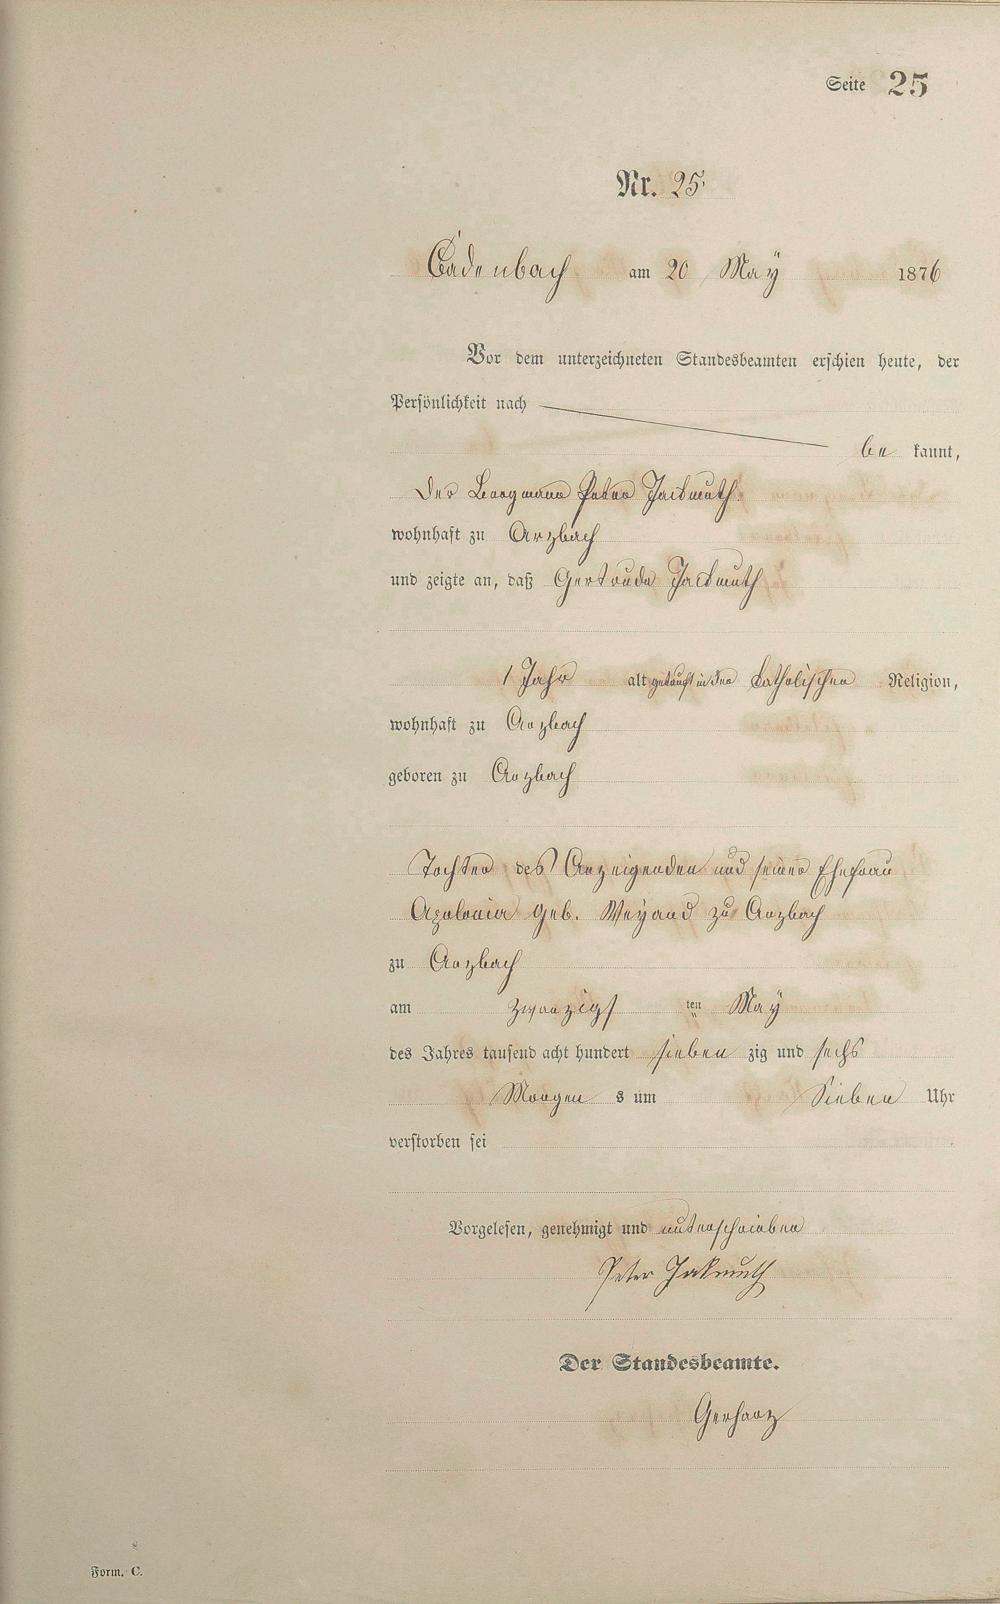 Seite 25
Nr. 25.
Cadenbach am 20 Maÿ 1876
Vor dem unterzeichneten Standesbeamten erschien heute, der
Persönlichkeit nach
be kannt,
der Bergmann Peter Jackmuth
wohnhaft zu Arzbach
und zeigte an, daß Gertruda Jackmuth
1 Jahr alt getauft in der katholischen Religion,
wohnhaft zu Arzbach
geboren zu Arzbach
Tochter des Anzeigenden und seiner Ehefrau
Apolonia geb. Weÿand zu Arzbach
zu Arzbach
am zwanzigs ten Maÿ
des Jahres tausend acht hundert sieben zig und sechs
Morgen s um Sieben Uhr
verstorben sei
Vorgelesen, genehmigt und unterschrieben
Peter Jakmuth
Der Standesbeamte.
Gerharz
Form. C.